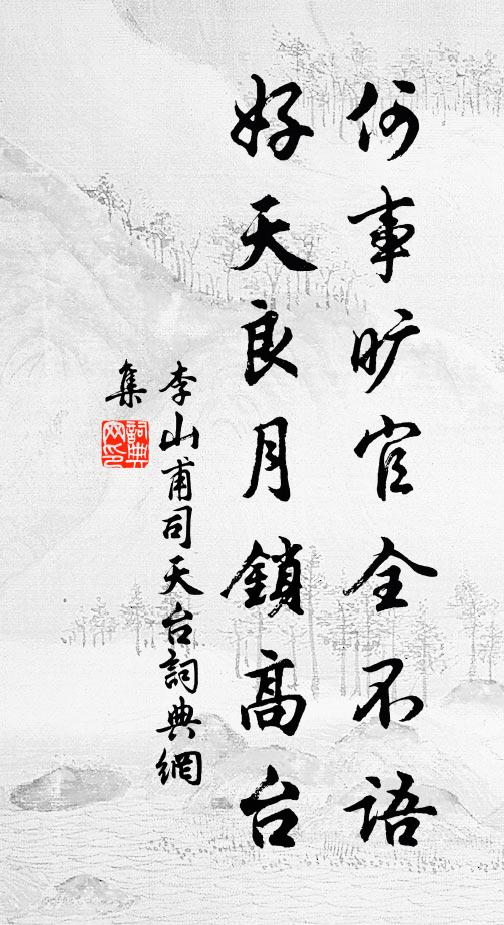 何事旷官全不语
好天良月鎖高台
李山甫司天台詞典網
集
詞典
网印